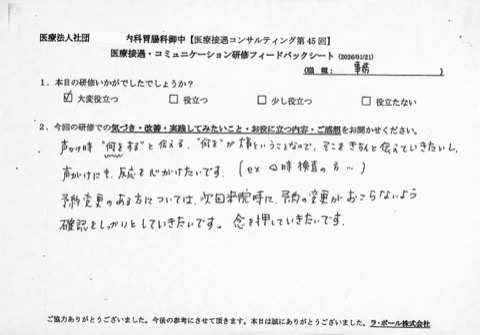 医療法人社団　　　内科胃腸科御中【医療接遇コンサルティング第 45 回】
医療接遇・コミュニケーション研修フィードバックシート（2026/01/21）
（職 種： 事務 ）
1．本日の研修いかがでしたでしょうか？
☑ 大変役立つ　□ 役立つ　□ 少し役立つ　□ 役立たない
2．今回の研修での気づき・改善・実践してみたいこと・お役に立つ内容・ご感想をお聞かせください。
声かけ時 "何をする" と伝える、"何を" が大事ということなので、そこをきちんと伝えていきたいし、
声がけにも、反応を心がけたいです。（ex 〇時 検査の方…）
予約変更のある方については、次回来院時に、予約の変更がおこらないよう
確認をしっかりとしていきたいです。念を押していきたいです。
ご協力ありがとうございました。今後の参考にさせて頂きます。本日は誠にありがとうございました。ラ・ポール株式会社